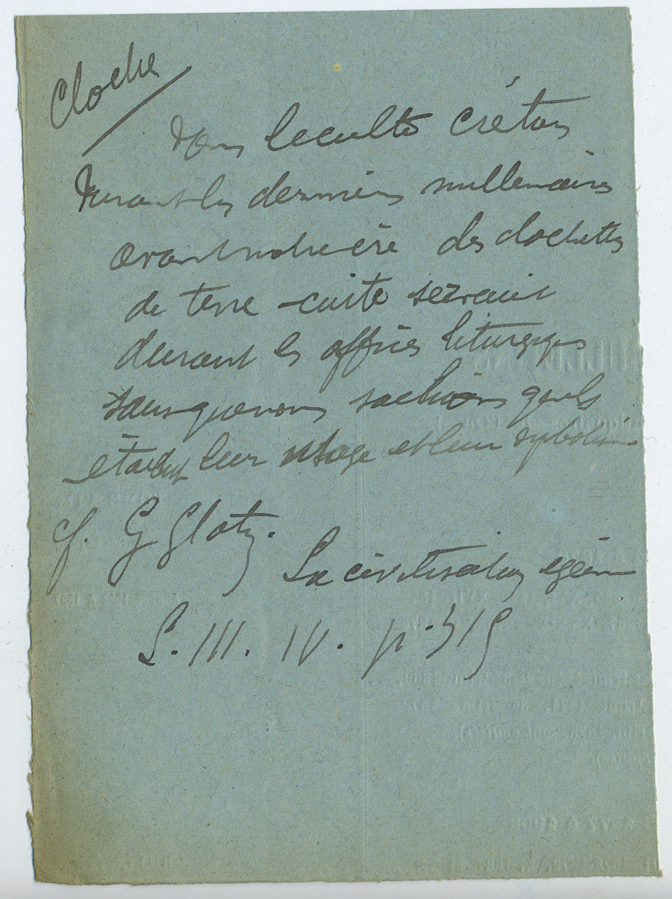 Cloche
Dans le culte crétois
durant les derniers millenaires
avant notre ère des clochettes
de terre-cuite servaient
durant les offices liturgiques
sans que nous sachions quels
étaient leur usage et leur symbolisme
cf. G Glotz.
La civilisation égéenne
L. III. IV. p. 319